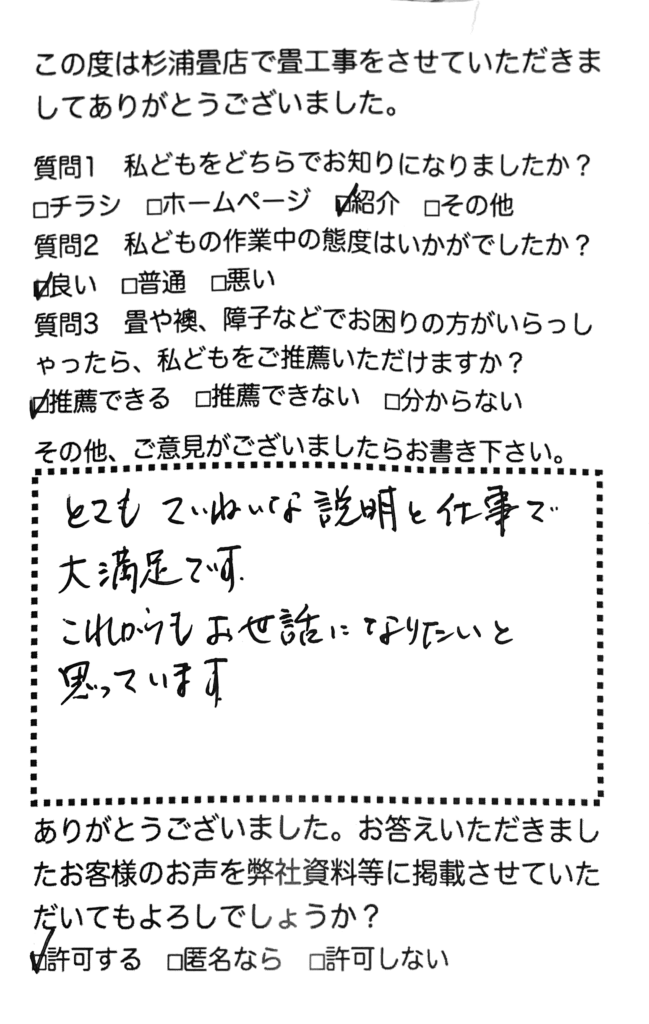 この度は杉浦畳店で畳工事をさせていただきま
してありがとうございました。
質問1 私どもをどちらでお知りになりましたか？
□チラシ □ホームページ ☑紹介 □その他
質問2 私どもの作業中の態度はいかがでしたか？
☑良い □普通 □悪い
質問3 畳や襖、障子などでお困りの方がいらっし
ゃったら、私どもをご推薦いただけますか？
☑推薦できる □推薦できない □分からない
その他、ご意見がございましたらお書き下さい。
とても ていねいな 説明と仕事で
大満足です.
これからも お世話に なりたいと
思っています
ありがとうございました。お答えいただきまし
たお客様のお声を弊社資料等に掲載させていた
だいてもよろしでしょうか？
☑許可する □匿名なら □許可しない